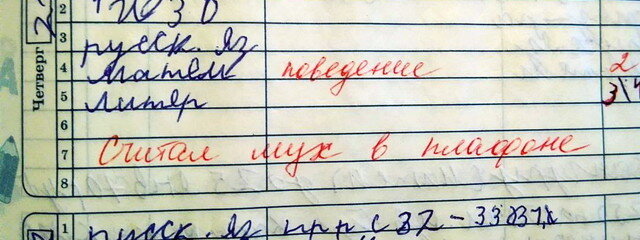 Четверг
2 ИЗО
3 русск. яз
4 матем поведение 2
5 литер 3\4
6
7 Считал мух в плафоне
8
1 русск. яз упр с 32-33